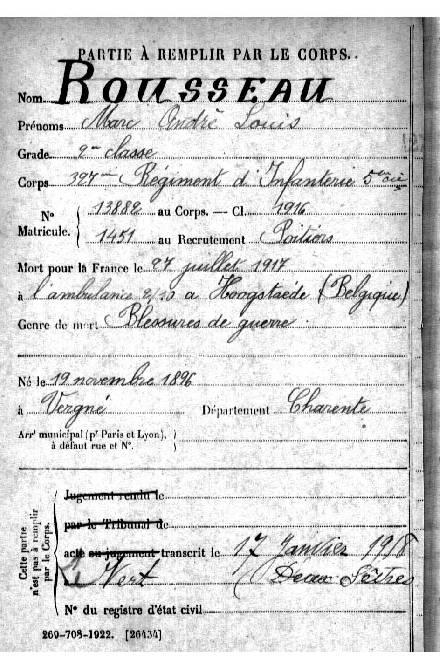 PARTIE À REMPLIR PAR LE CORPS.
Nom ROUSSEAU
Prénoms Marc André Louis
Grade 2me classe
Corps 327me Régiment d'Infanterie 5e Cie
Nº Matricule. { 13882 au Corps. — Cl. 1916
1451 au Recrutement Poitiers
Mort pour la France le 27 juillet 1917
à l'ambulance 2/20 a Hoogstaede (Belgique)
Genre de mort Blessures de guerre
Né le 19 novembre 1896
à Vergné Département Charente
Arr' municipal (p' Paris et Lyon),
à défaut rue et Nº.
Cette partie
n'est pas à remplir
par le Corps.
Jugement rendu le
par le Tribunal de
acte ou jugement transcrit le 17 Janvier 1918
Le Vert (Deux Sèvres
Nº du registre d'état civil
269-708-1922. [26434]